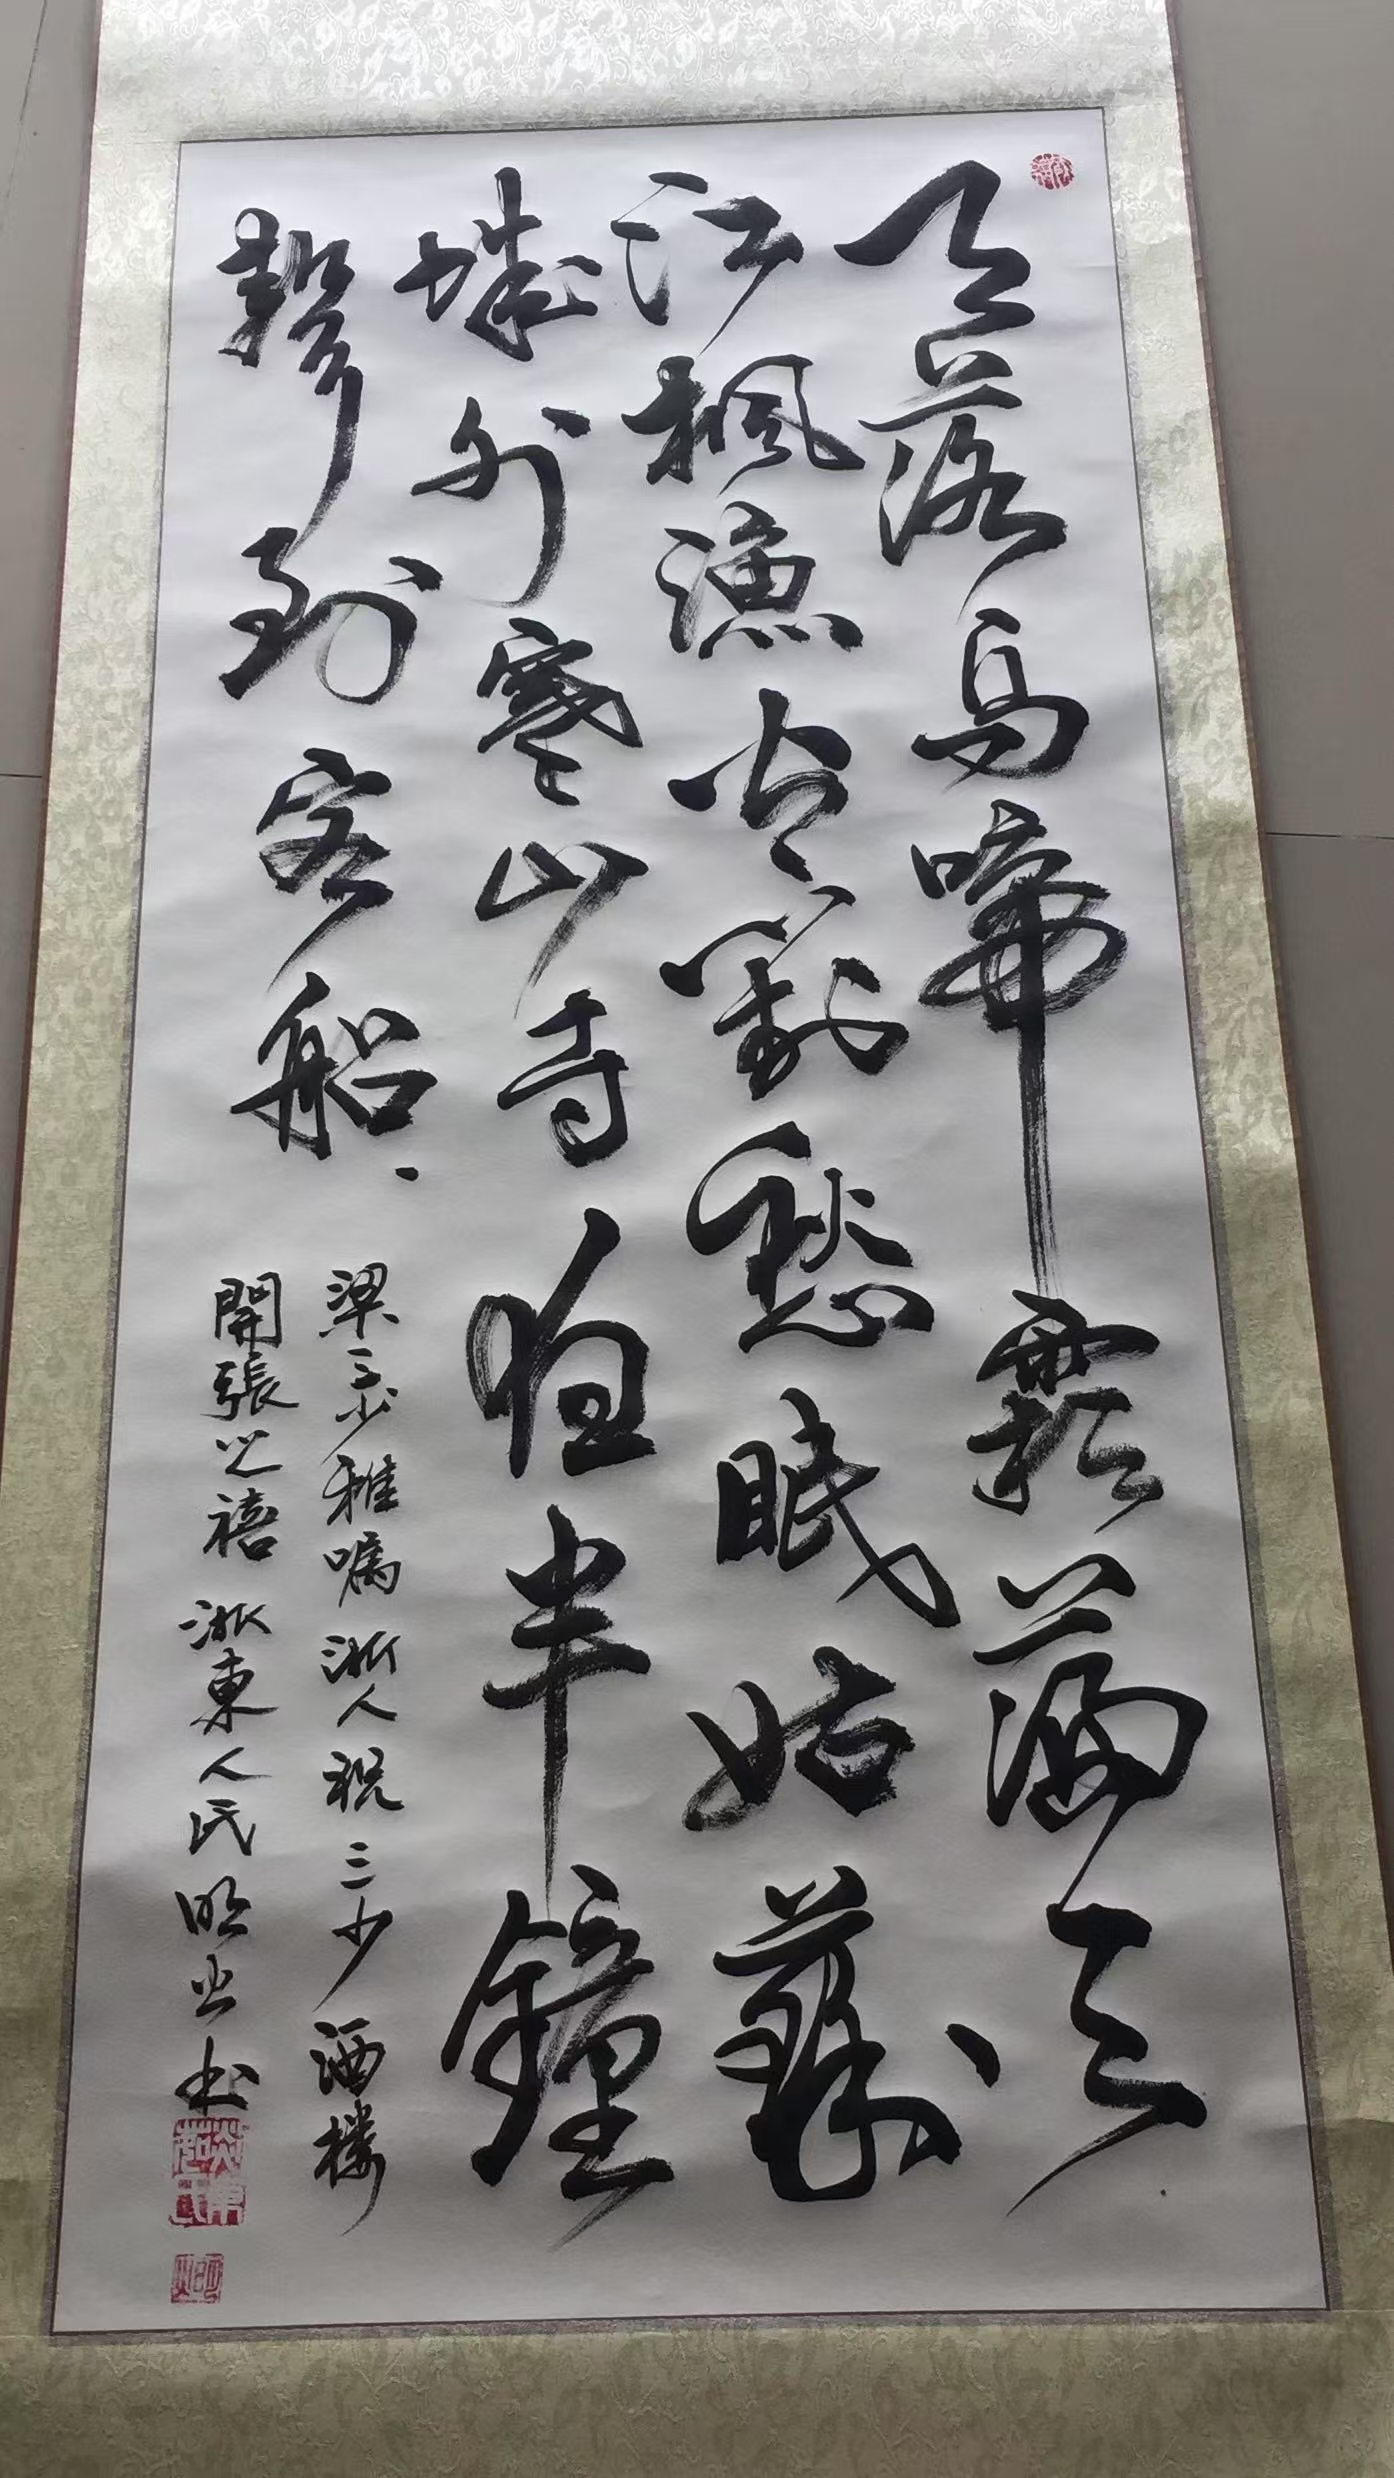 月落烏啼霜滿天
江楓漁火對愁眠姑蘇
城外寒山寺夜半鐘
聲到客船
梁三少雅嘱浙人祝三少酒楼
開張之禧浙東人氏明书